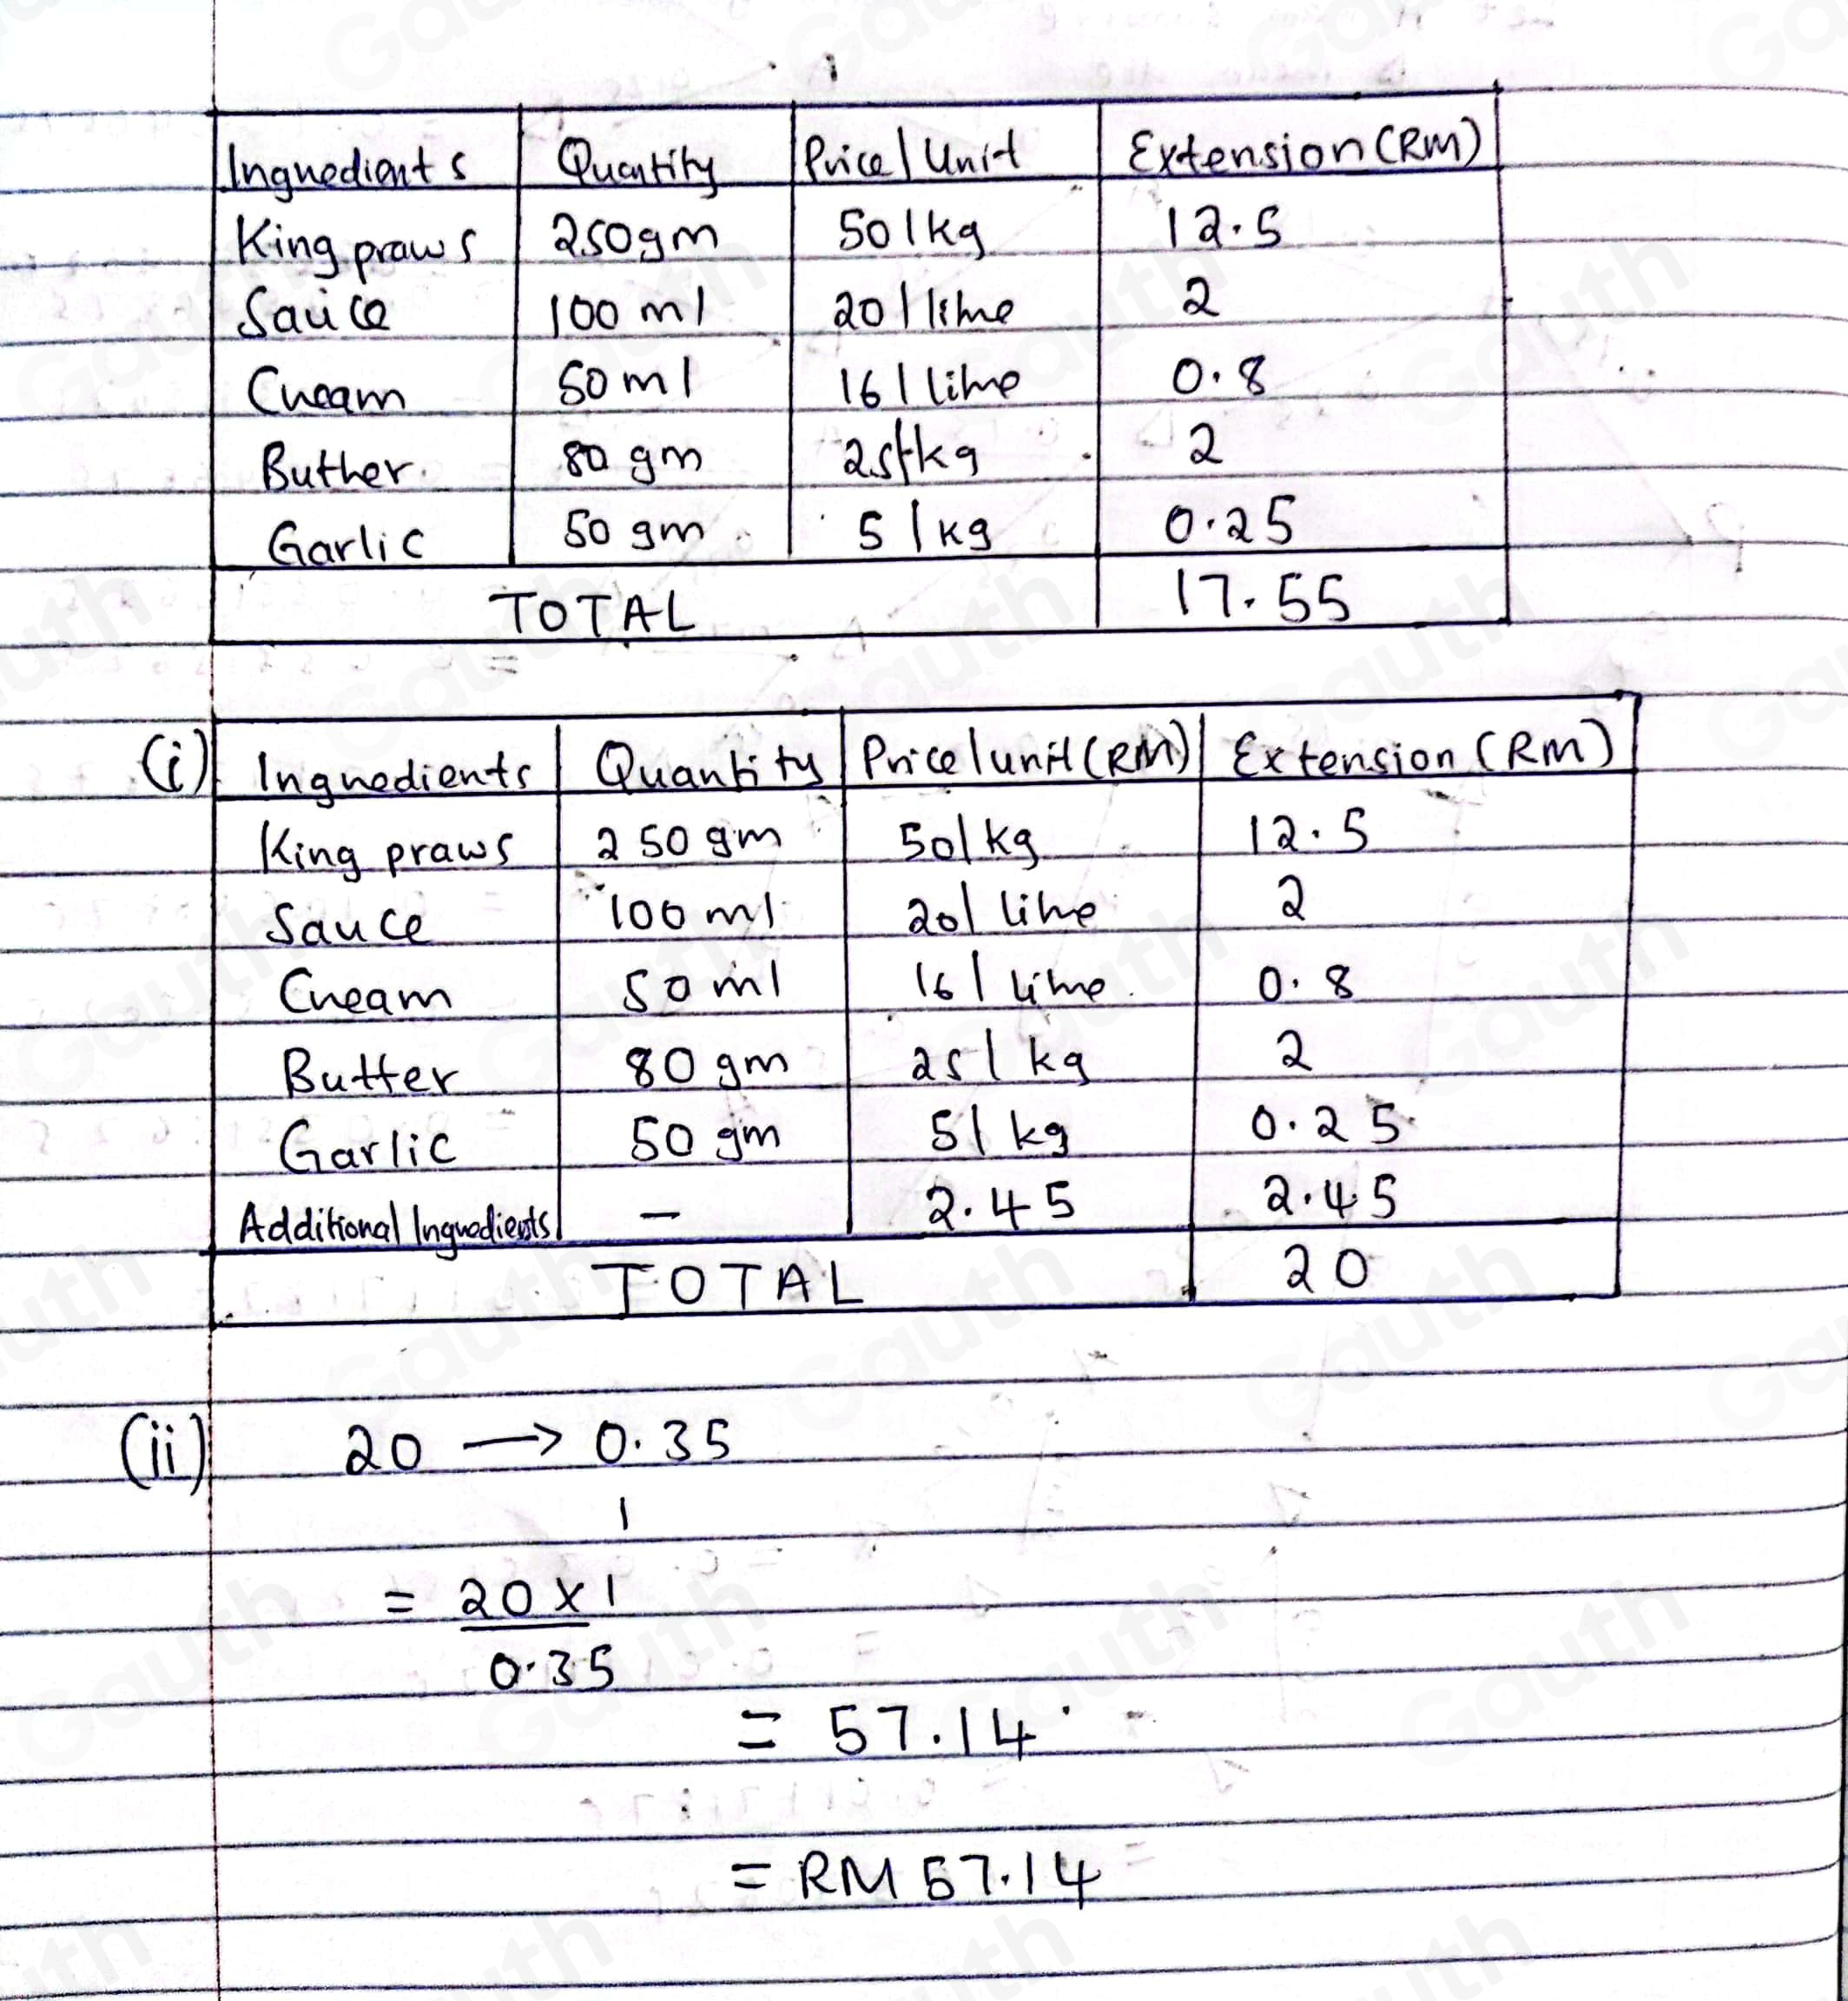 Ingredients Quantity Price/Unit Extension (RM)
King praws 250gm 50/kg 12.5
Sauce 100 ml 20/litre 2
Cream 50 ml 16/litre 0.8
Buther. 80 gm 25/kg 2
Garlic 50 gm 5/kg 0.25
TOTAL 17.55
(i) Ingredients Quantity Price/unit (RM) Extension (RM)
King praws 250 gm 50/kg 12.5
Sauce 100 ml 20/litre 2
Cream 50 ml 16/litre 0.8
Butter 80 gm 25/kg 2
Garlic 50 gm 5/kg 0.25
Additional Ingredients - 2.45 2.45
TOTAL 20
(ii) 20 → 0.35
1
= 20 x 1
0.35
= 57.14
= RM 57.14
Gauth